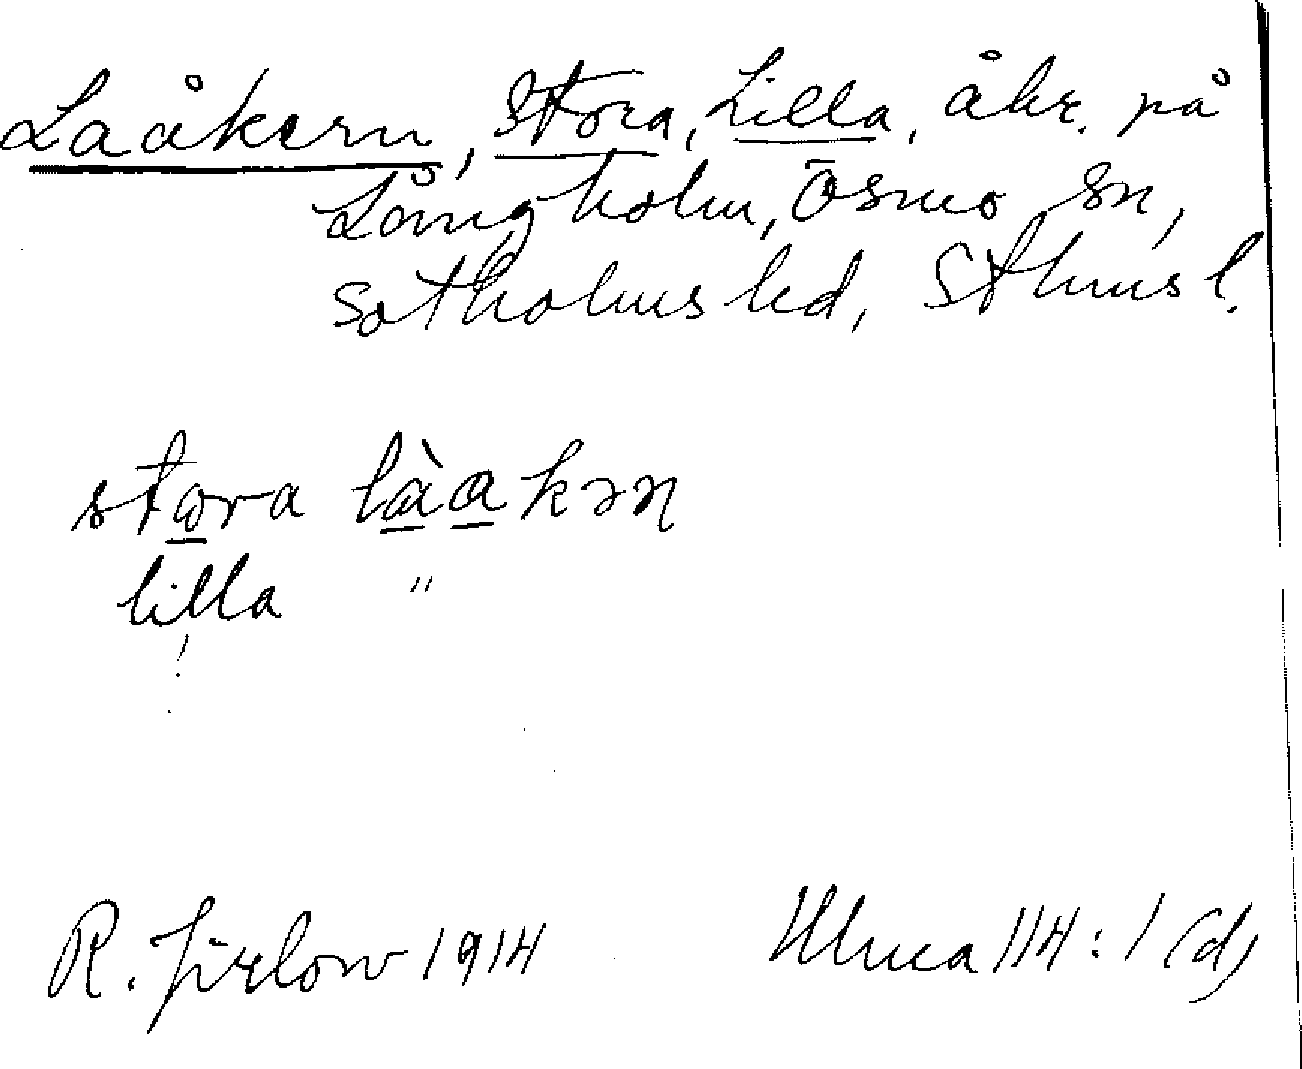 Laåkern, Stora, Lilla, åkr. på
Långholm, Ösmo sn,
Sotholms hd, Sthms l.
stora làakən
lilla "
R. Jirlow 1914 Ulma 114:1 (d)